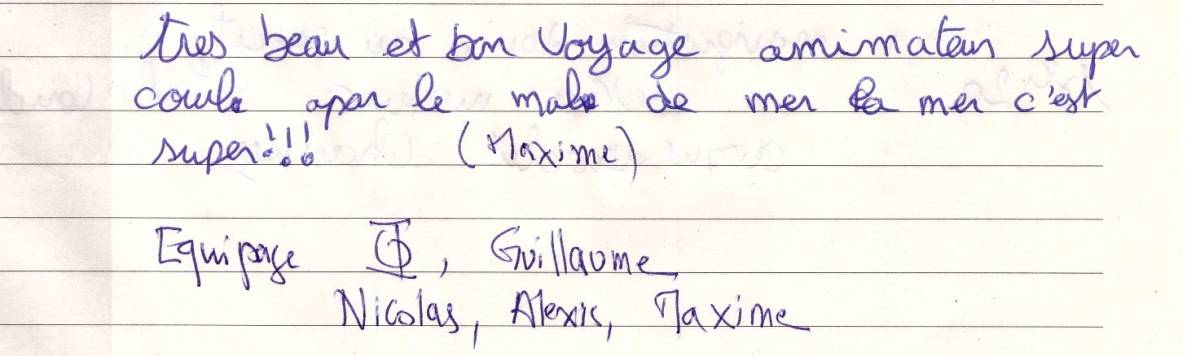 tres beau et bon Voyage animateur super
coule apar le male de mer la mer c'est
super!!! (Maxime)
Equipage , Guillaume
Nicolas, Alexis, Maxime